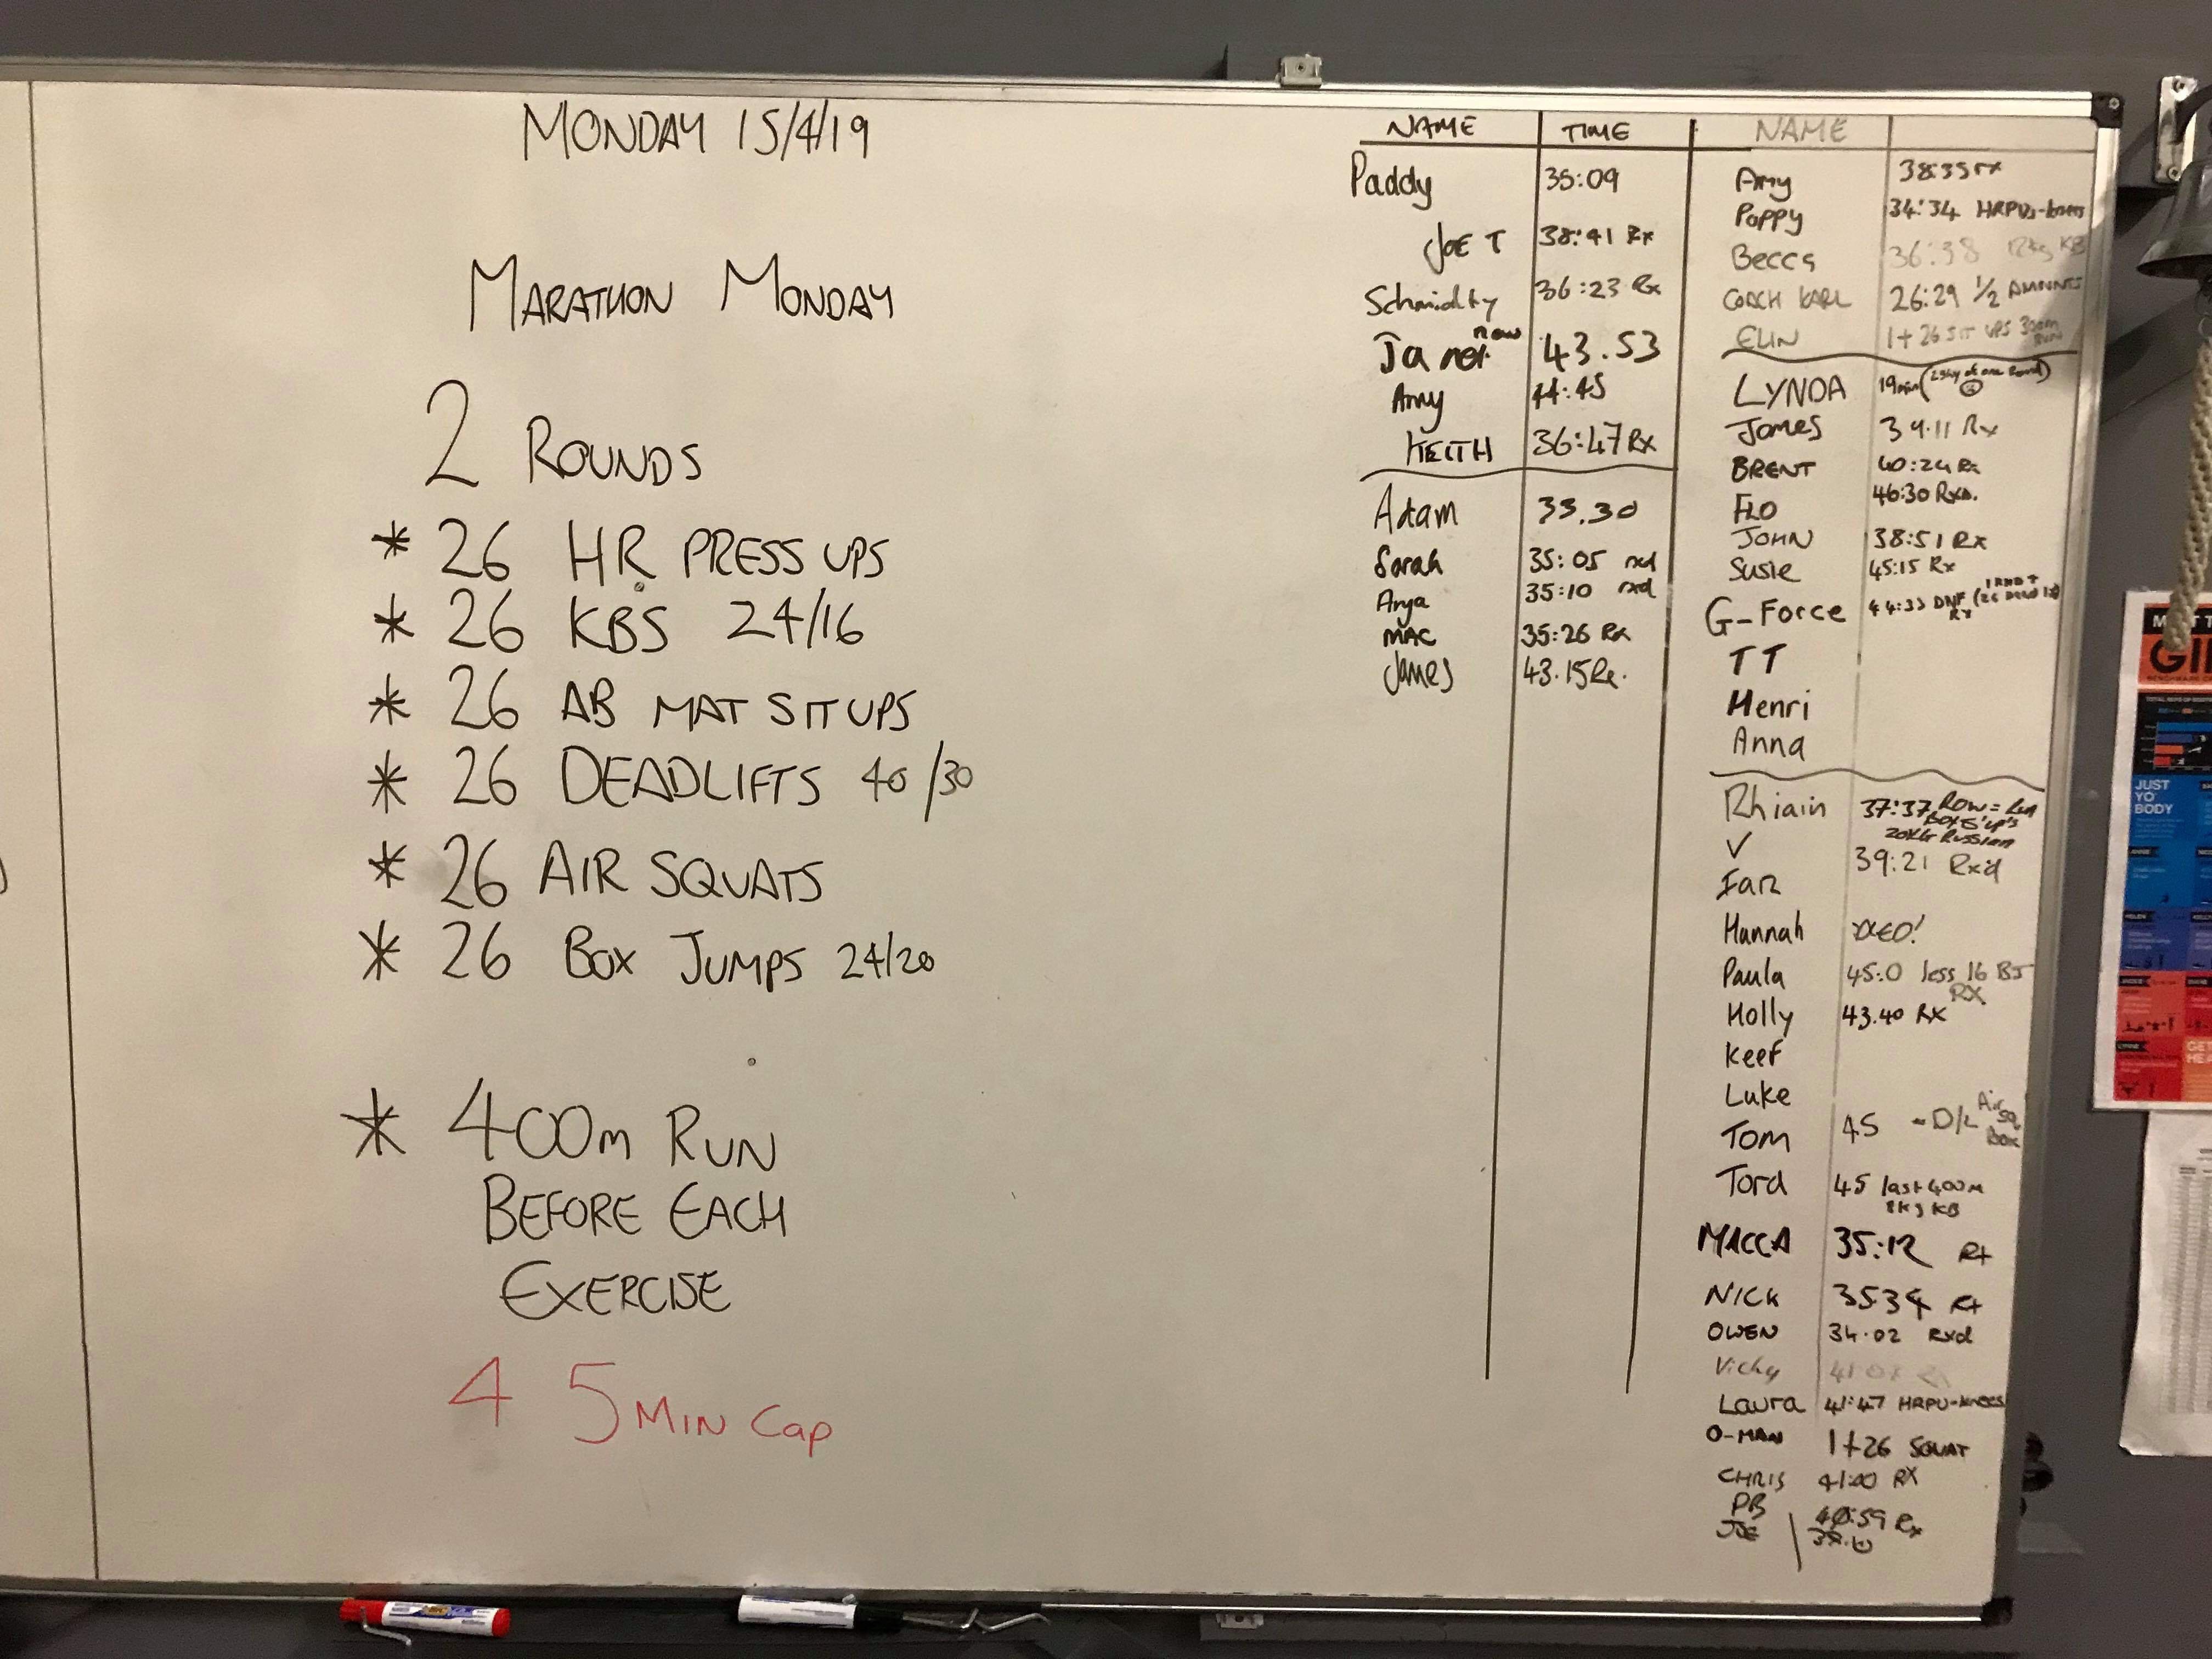 MONDAY 15/4/19
MARATHON MONDAY
2 ROUNDS
* 26 HR PRESS UPS
* 26 KBS 24/16
* 26 AB MAT SIT UPS
* 26 DEADLIFTS 40/30
* 26 AIR SQUATS
* 26 BOX JUMPS 24/20
* 400m RUN
BEFORE EACH
EXERCISE
45 MIN CAP
NAME TIME
Paddy 35:09
JOE T 38:41 Rx
Schmidty 36:23 Rx
Janet row 43.53
Amy 44:45
KEITH 36:47 RX
Adam 33.30
Sarah 35:05 rxd
Anya 35:10 rxd
MAC 35:26 Rx
James 43.15 Rx.
NAME
Amy 38:35 rx
Poppy 34:34 HRPUs-knees
Becca 36:38 12kg KB
COACH KARL 26:29 1/2 AMNNTS
ELIN 1+26 SIT UPS 300m RUN
LYNDA 19min
James 39.11 Rx
BRENT 40:24 Rx
FLO 46:30 Rxd.
JOHN 38:51 Rx
Susie 45:15 Rx
G-Force 44:33 DNF RX
TT
Henri
Anna
Rhiain 37:37 Row = Run
20KG Russian
V 39:21 Rxd
Hannah
Paula 45:0 less 16 BJ
RX
Holly 43.40 RX
Keef
Luke
Tom 45 - D/L Air Sq Box
Tord 45 last 400m
8kg KB
MACCA 35:12 Rx
NICK 35 34 Rx
OWEN 34.02 Rxd
Vicky
Laura 41:47 HRPU-knees
O-MAN 1+26 SQUAT
CHRIS 41:00 RX
PB 40:59 Rx
JOE
JUST
YO'
BODY